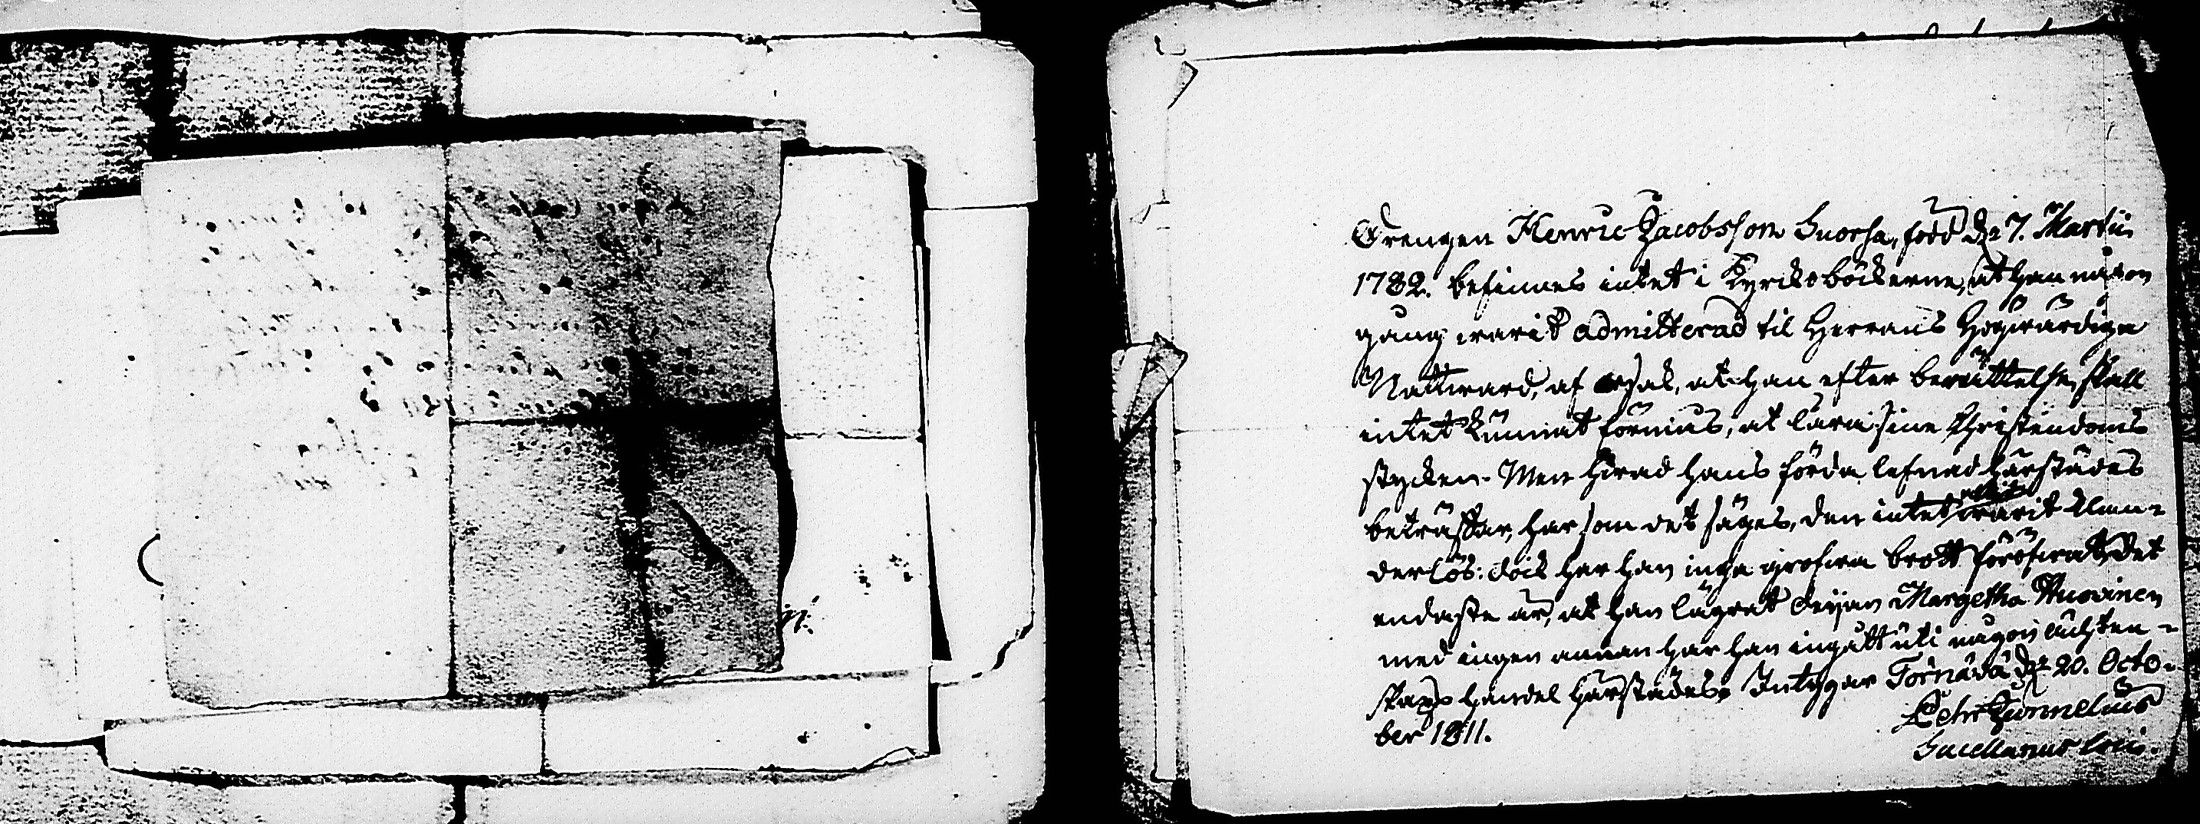 Drengen Henric Jacobsson Snorsa, född d. 7. Martii
1782. befinnes intet i Kyrckoböckerne, at han någon
gång warit admitterad til Herrans Högwärdiga
Nattward, af orsak, at han efter berättelse, skall
intet kunnat förmås, at lära sine Christendoms
stycken. Men hwad hans förda lefnad härstädes
beträffar, har som det säges, den intet warit klan-
derlös: dock har han inga grofwa brott föröfwat, det
endaste är, at han lägrat Pigan Margetha Huovinen
med ingen annan har han ingått uti någon äckten-
skaps handel härstädes. Intygar Törnävä d. 20. Octo-
ber 1811.
Pehr Gunnelius
Sacellanus loci.